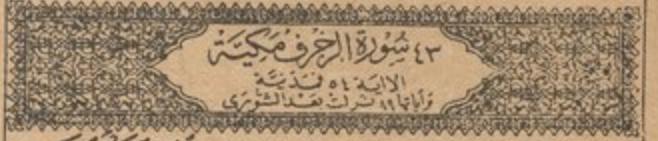 ٤٣ سورة الزخرف مكية
الا اية ٥٤ فمدنية
وآياتها ٨٩ نزلت بعد الشورى